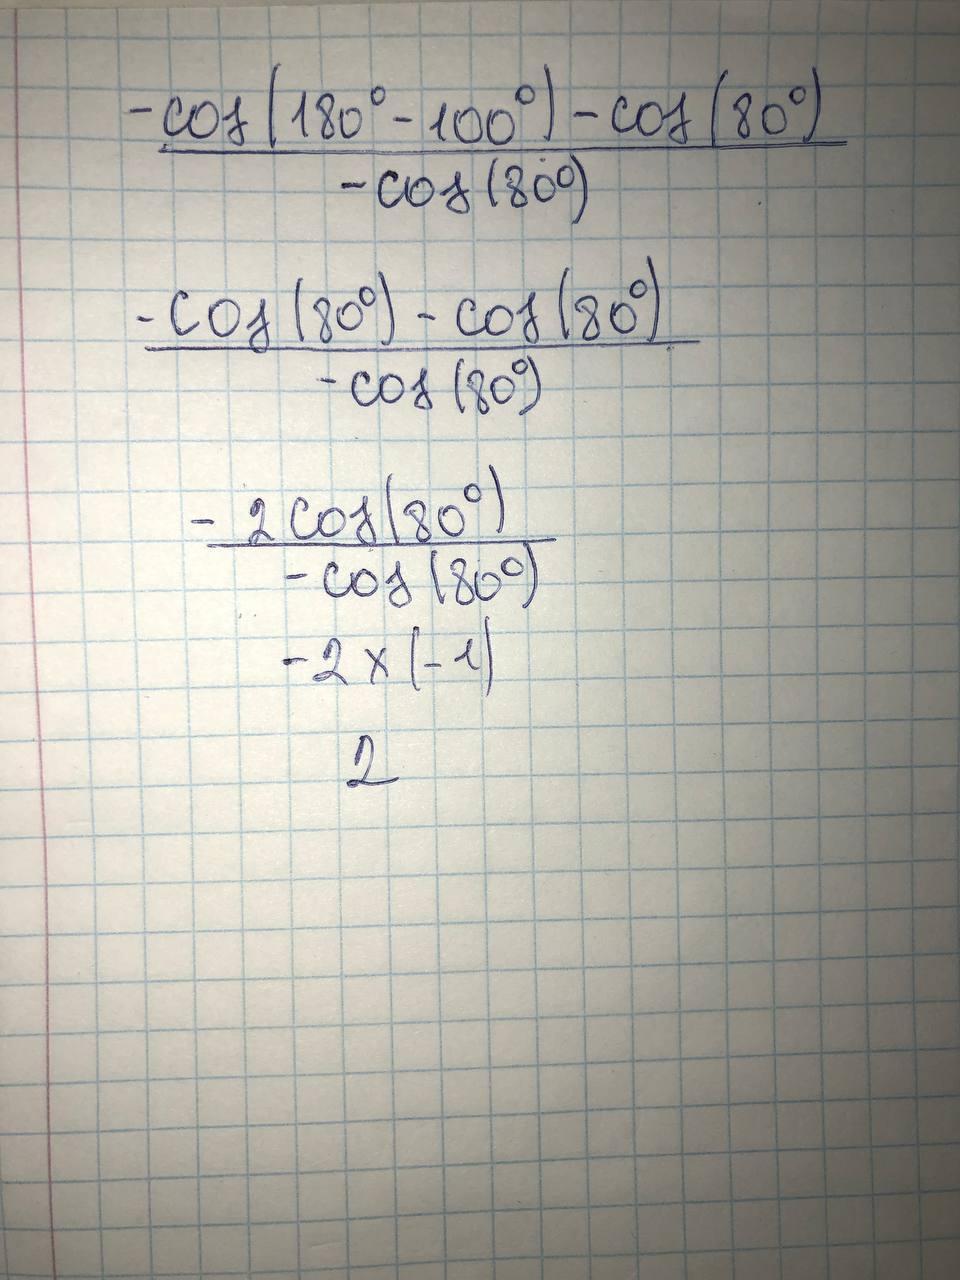 -cos(180°-100°)-cos(80°)
-cos(80°)
-cos(80°)-cos(80°)
-cos(80°)
-2cos(80°)
-cos(80°)
-2×(-1)
2